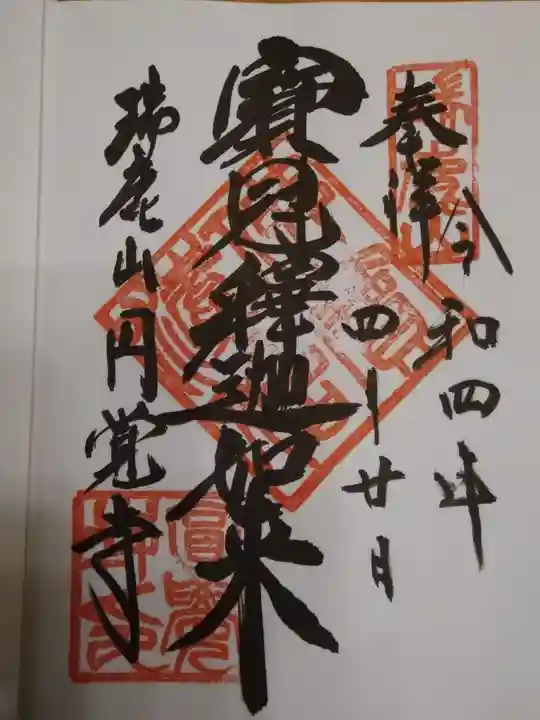 奉拝
令和四年
四ー廿日
寶冠釋迦如来
瑞鹿山円覚寺